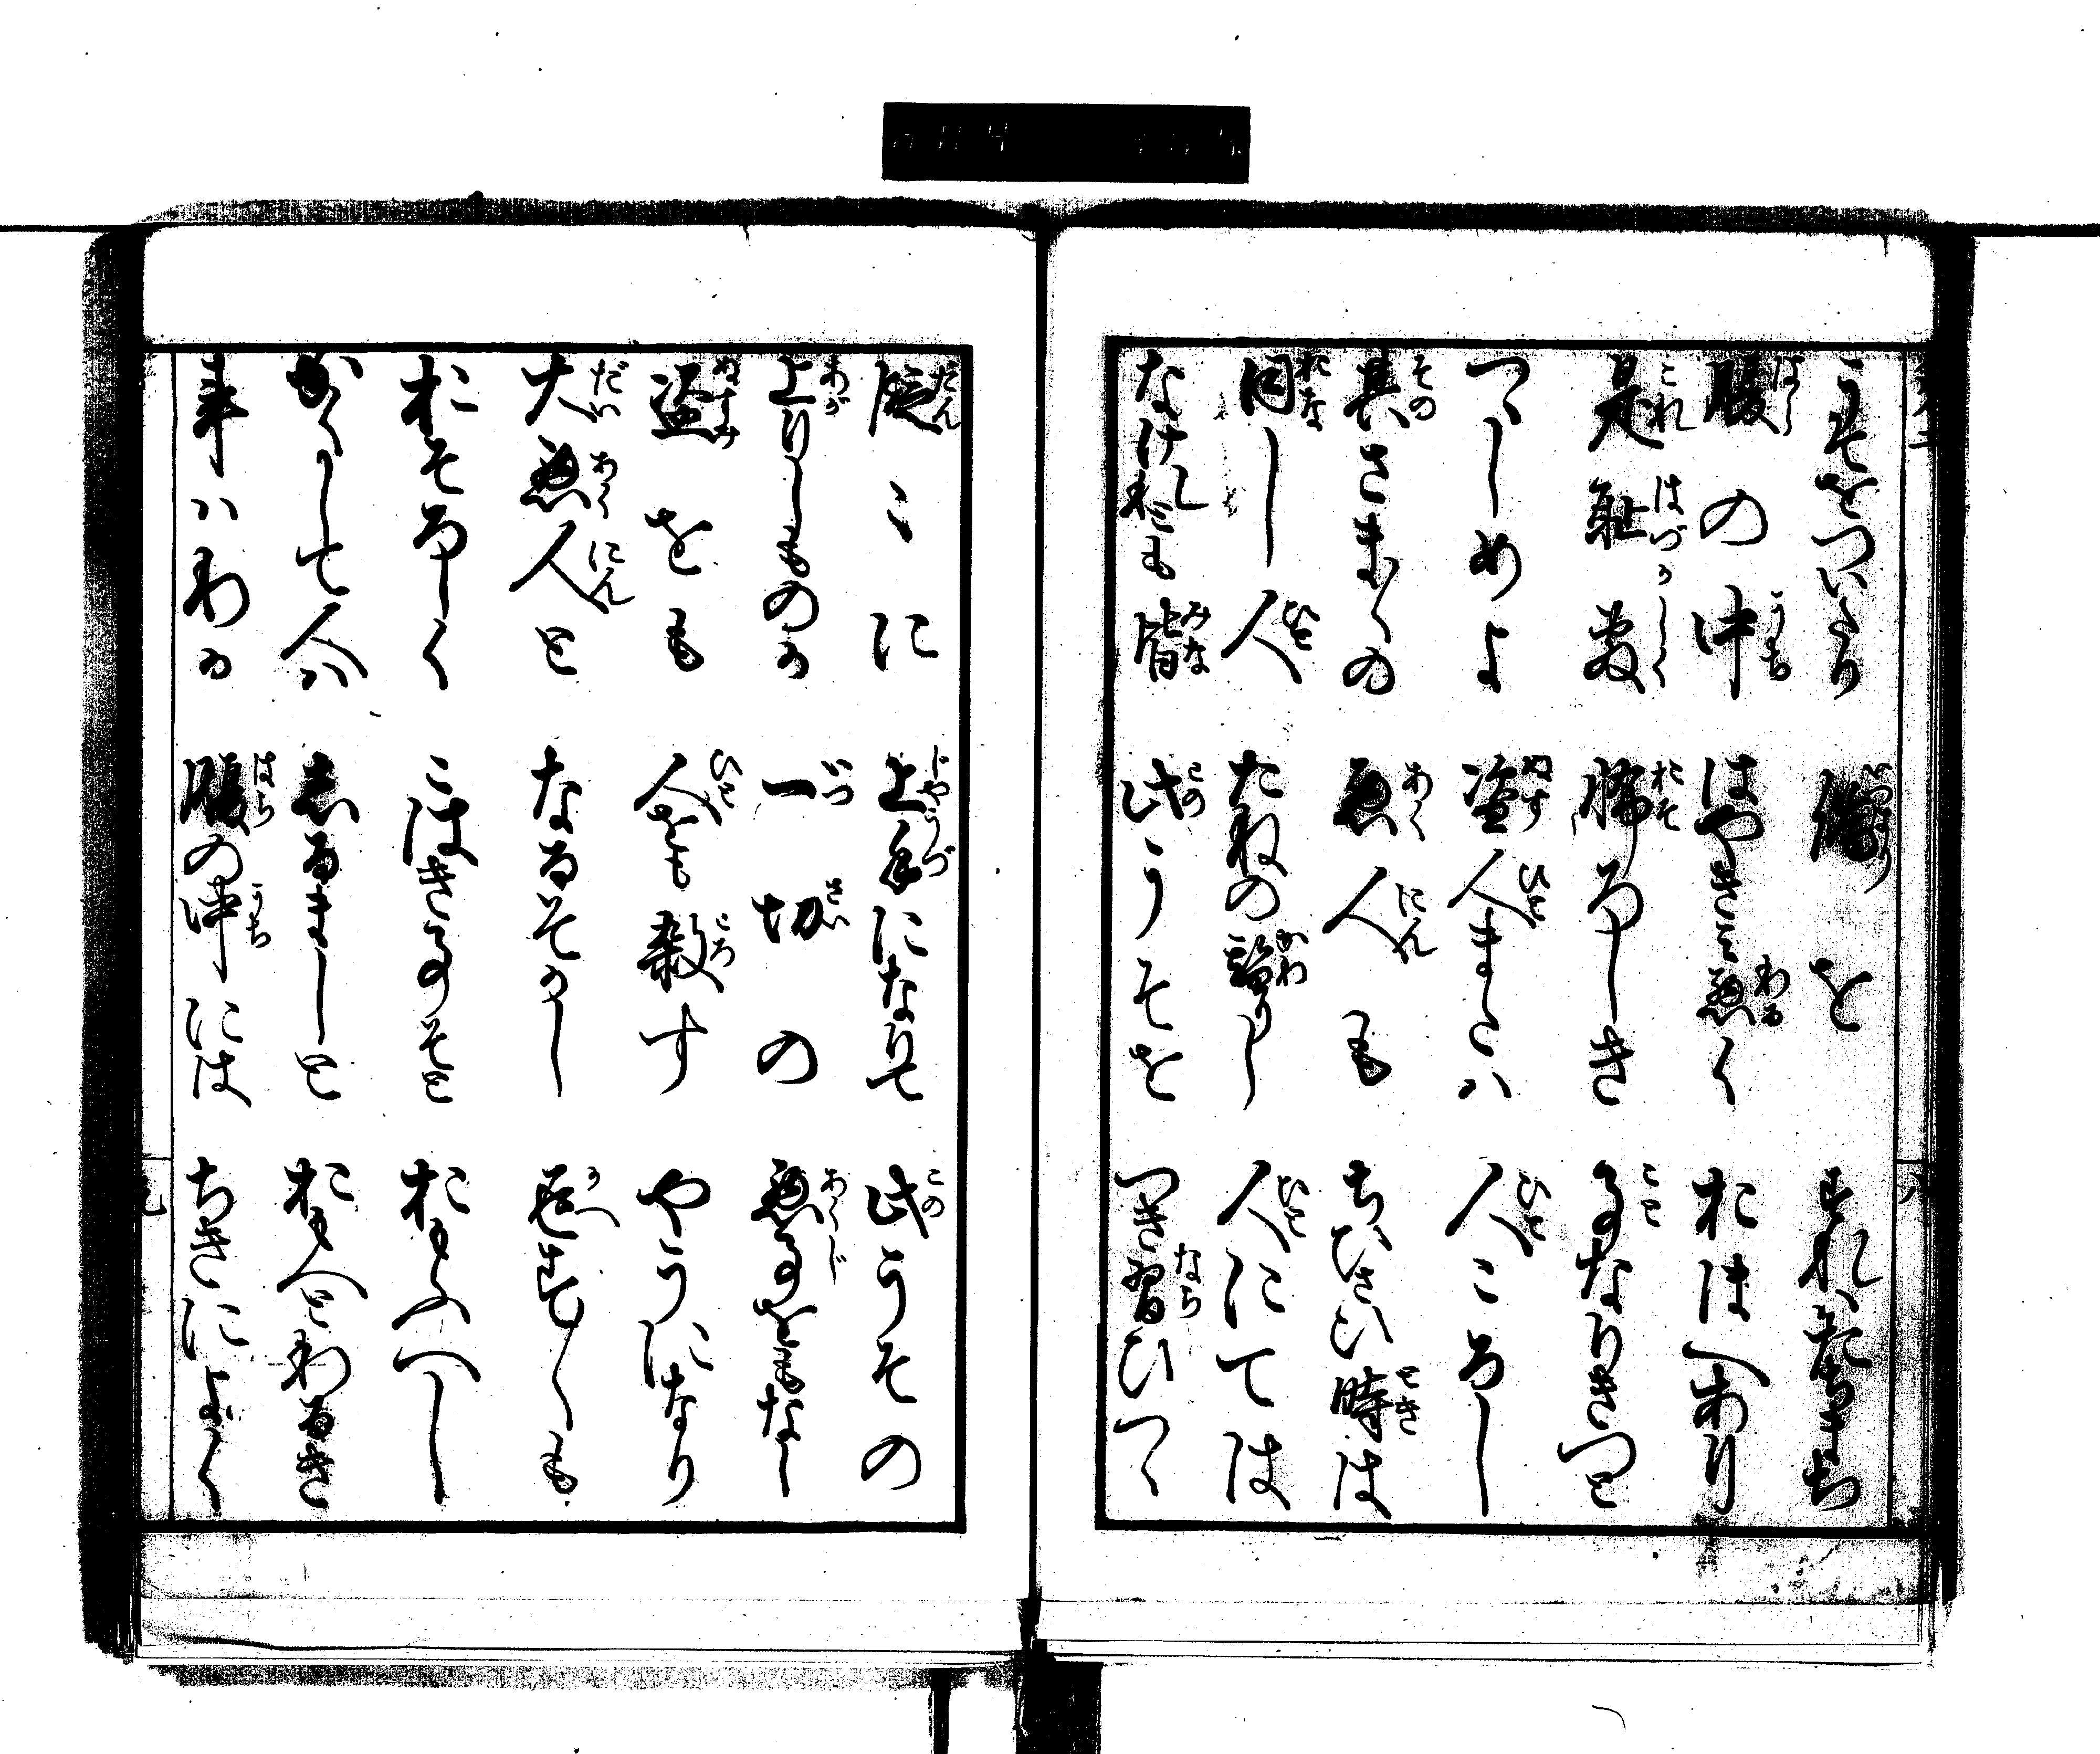 うそをついたり偽をすれはたちまち
腹の中はやきもき悪くおほへあり
是耻敷怖ろしき事なりきつと
つゝしめよ盗人または人ころし
其さま〳〵の悪人もちひさい時は
同し人たねの替りし人にては
なけれとも皆此うそをつき習ひつゝ
段〻に上手になりて此うその
上りしものか一切の悪事をもなし
盗をも人をも殺すやうになり
大悪人となるそかし返す〳〵も
おそろしくこはき事そとおもふへし
かくして人ハしるましとおもへとわるき
事ハわか腹の中にはちきによく